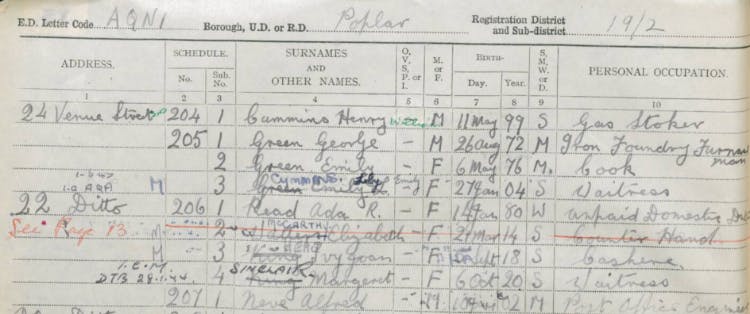 E.D. Letter Code AQNI Borough, U.D. or R.D. Poplar Registration District and Sub-district 19/2
ADDRESS. SCHEDULE. No. Sub. No. SURNAMES AND OTHER NAMES. O, V, S, P. or I. M. or F. BIRTH— Day. Year. S, M, W, or D. PERSONAL OCCUPATION.
1 2 3 4 5 6 7 8 9 10
24 Venue Street 204 1 Cummins Henry M 11 May 99 S Gas Stoker
205 1 Green George - M 26 Aug 72 M Iron Foundry Furnace man
2 Green Emily - F 6 May 76 M. Cook
CUMMINS. Lily Emily
M 3 Green Emily - F 27 Jan 04 S Waitress
22 Ditto 206 1 Read Ada R. - F 14 Jan 80 W Unpaid Domestic
McCARTHY
See Page 13. 2 Elizabeth - F 2 Mar 14 S Counter Hand
READ
M 3 King Ivy Joan - F Sept 18 S Cashier
SINCLAIR
4 King Margaret - F 6 Oct 20 S Waitress
207 1 Neve Alfred - M. 02 M Post Office